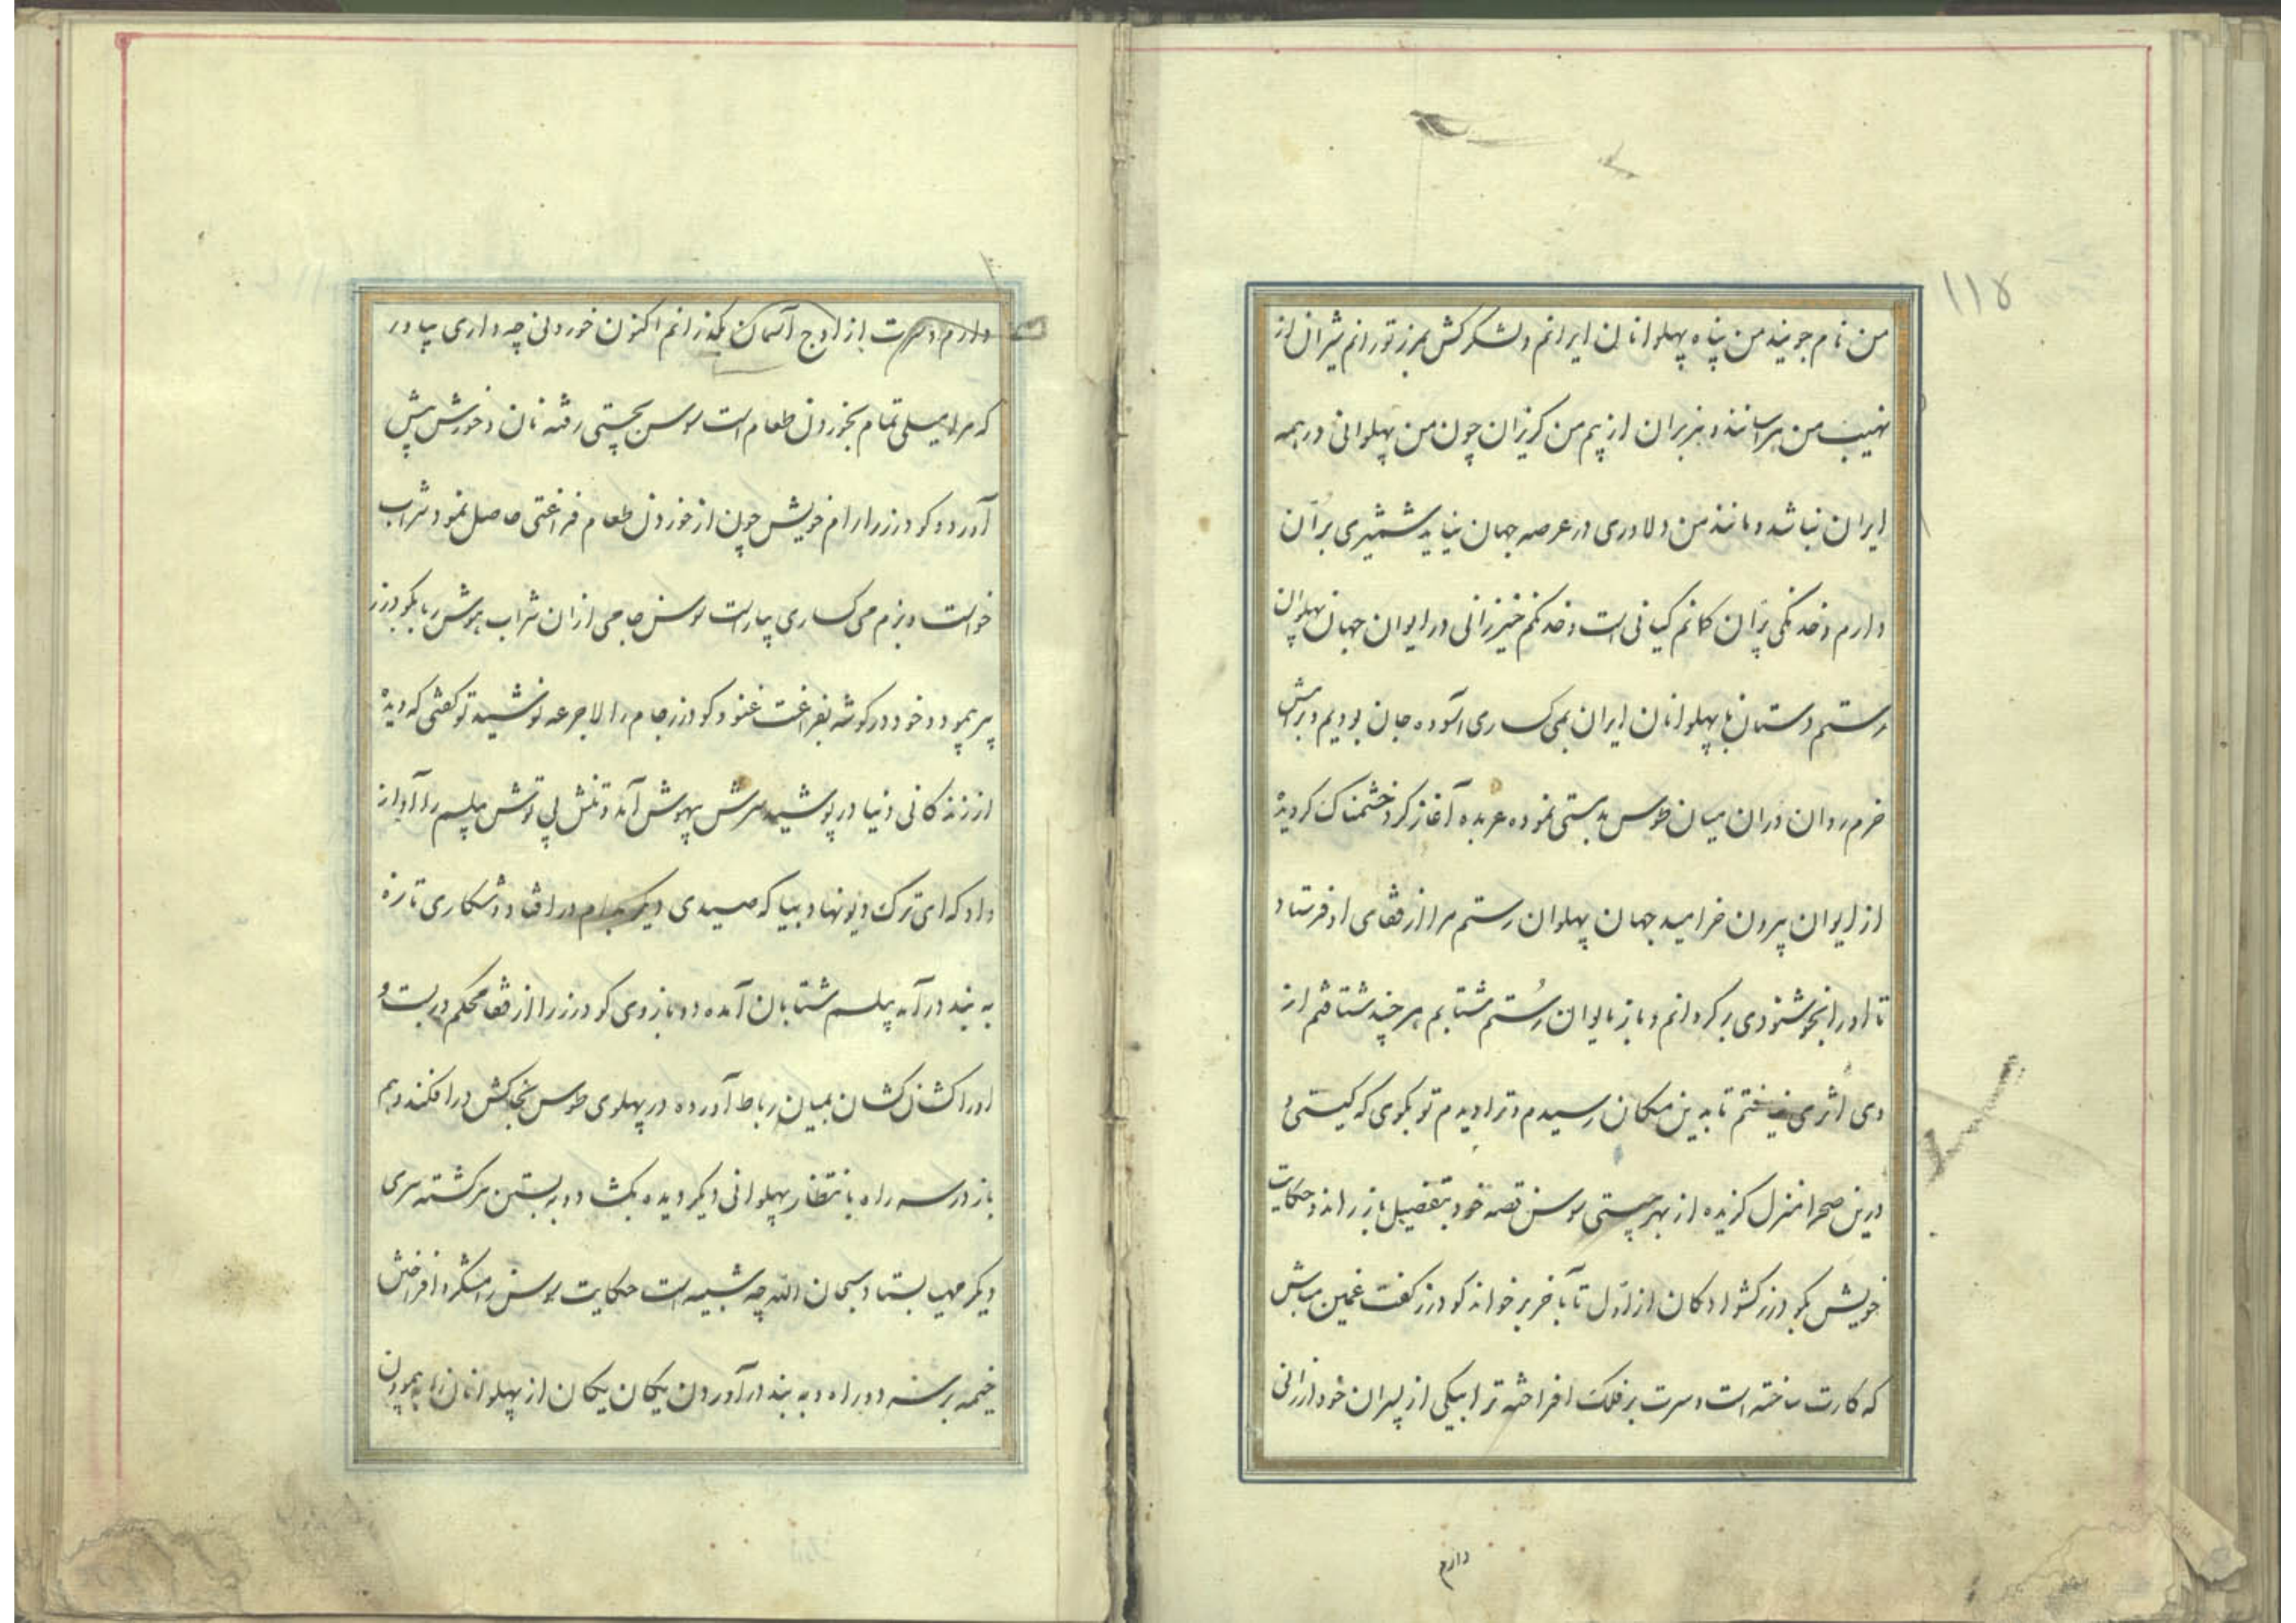 ۱۱۵
من نام جویند من پناه پهلوانان ایرانم و لشکرکش مرز تورانم شیران از
نهیب من هراسانند و هزبران از بیم من کریزان چون من پهلوانی در همه
ایران نباشد و مانند من دلاوری در عرصه جهان نیاید شمشیری برّان
دارم و خدنکی پرّان کمانم کیانی است و خدنکم خیزرانی در ایوان جهان پهلوان
رستم دستان با پهلوانان ایران بمی کساری آسوده جان بودیم و برامش
خرم روان دران میان طوس بدمستی نموده عربده آغاز کرد خشمناک کردیده
از ایوان بیرون خرامید جهان پهلوان رستم مرا از قفای او فرستاد
تا او را بخوشنودی برکردانم و باز بایوان رستم شتابم هر چند شتافتم از
وی اثری نیافتم تا بدین مکان رسیدم و ترا دیدم تو بکوی که کیستی و
درین صحرا منزل کزیده از بهر چیستی سوسن قصه خود بتفصیل باز راند و حکایت
خویش بکودرز کشوادکان از اول تا بآخر بر خواند کودرز کفت غمین مباش
که کارت ساخته است و سرت بر فلک افراخته ترا بیکی از پسران خود ارزانی
دارم
دارم و سرت از اوج آسمان بگذرانم اکنون خوردنی چه داری بیاور
که مرا میلی تمام بخوردن طعام است سوسن بچستی رفته نان و خورش پیش
آورد و کودرز را رام خویش چون از خوردن طعام فراغتی حاصل نمود شراب
خواست و بزم می کساری بیاراست سوسن جامی ازان شراب هوش ربا بکودرز
پر پیمود و خود در کوشه بفراغت غنود کودرز جام را لاجرعه نوشید تو کفتی که دیده
از زندکانی دنیا در پوشید سرش بیهوش آمد و تنش بی توش پیلسم را آواز
داد که ای ترک دیو نهاد بیا که صیدی دیکر بدام در افتاد و شکاری تازه
به بند در آمد پیلسم شتابان آمده دو بازوی کودرز را از قفا محکم در بست و
او را کشان کشان بمیان رباط آورده در پهلوی طوس بخاکش در افکند و هم
باز در سه راه بانتظار پهلوانی دیکر دیده بکشاد و به بستن سرکشته سری
دیکر مهیا بستاد سبحان الله چه شبیه است حکایت سوسن رامشکر و افراختن
خیمه بر سه دو راه و به بند در آوردن یکان یکان از پهلوانان را به پیمودن